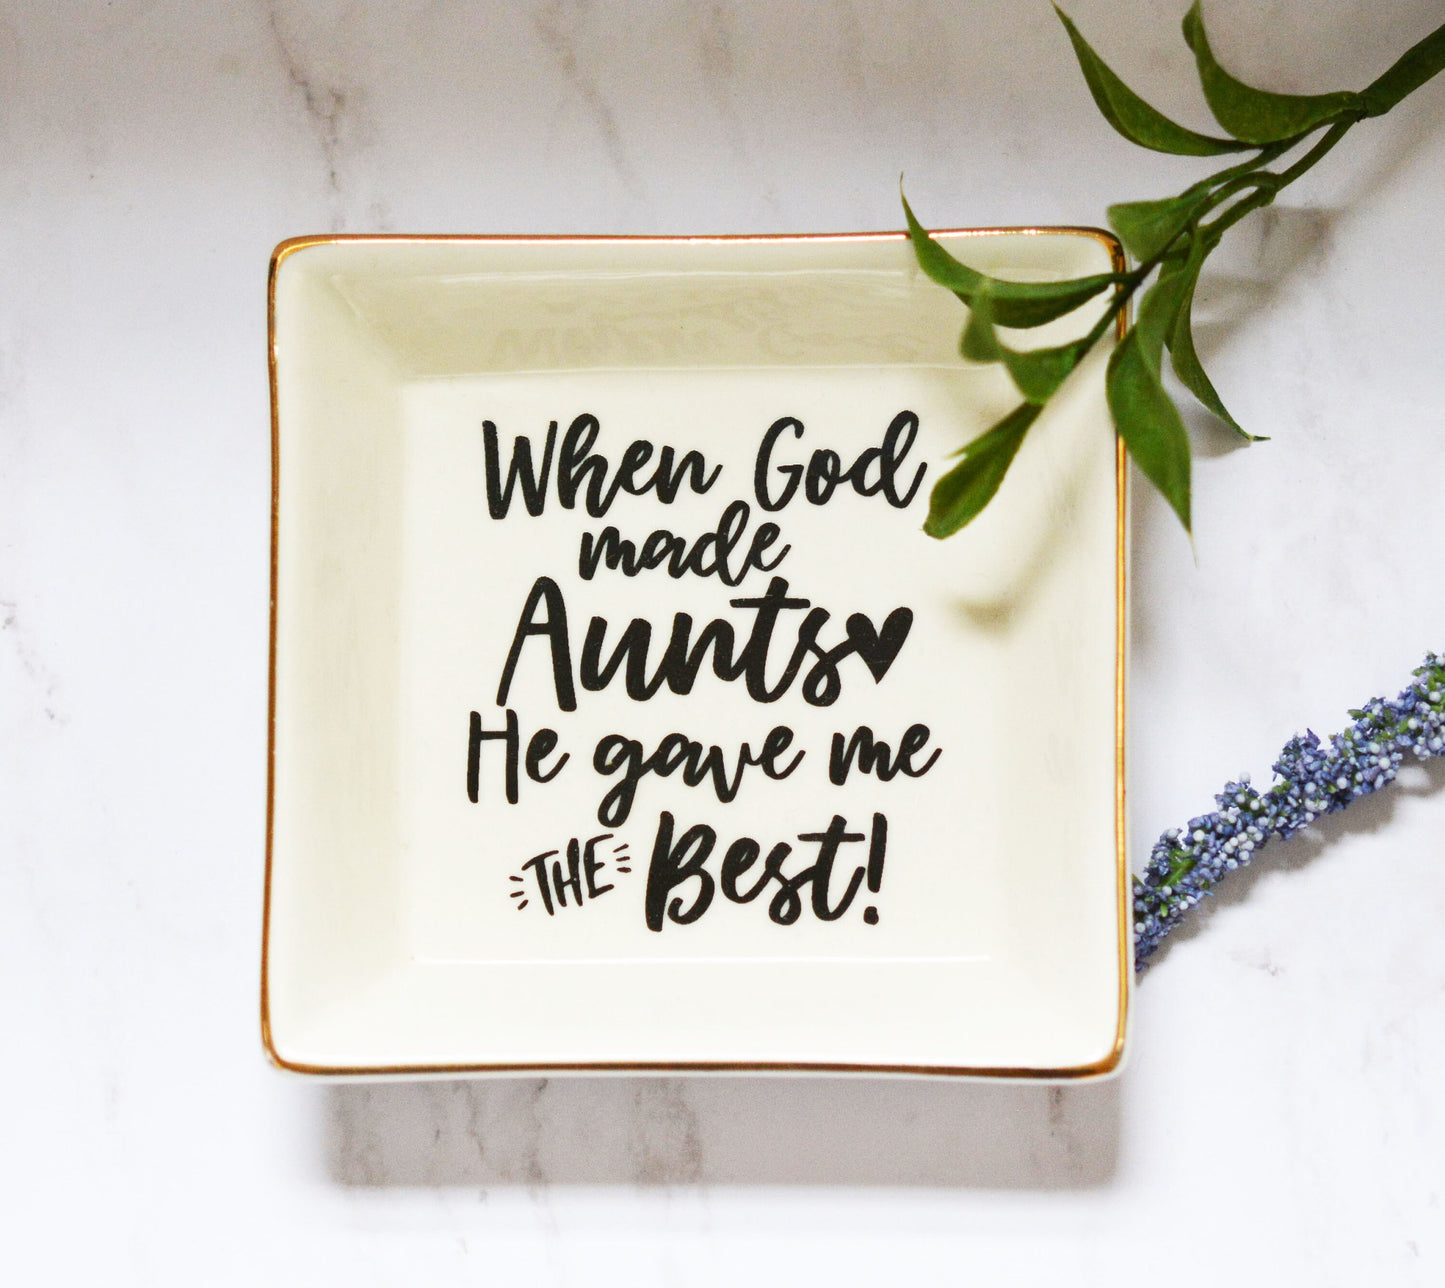 When God
made
Aunts
He gave me
THE Best!